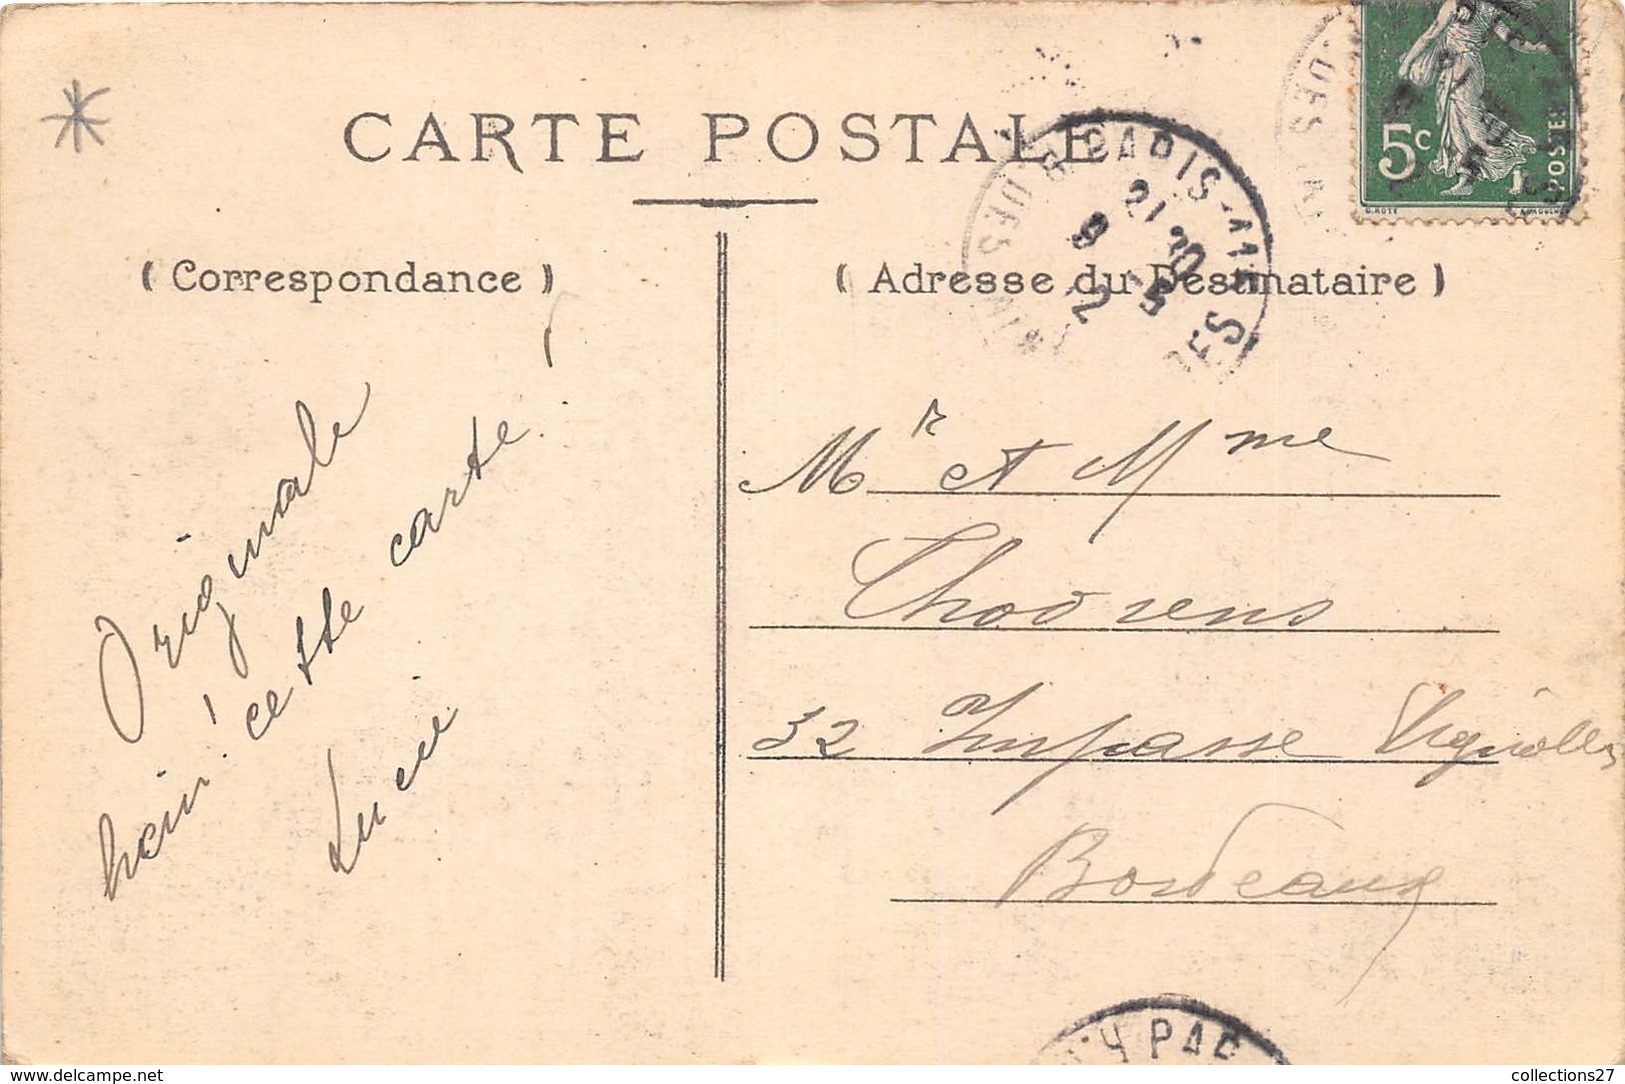 CARTE POSTALE
( Correspondance )
( Adresse du Destinataire )
5c
POSTES
PARIS
21 20
9 - 5
2
Originale
hein! cette carte!
Lucie
Mr et Mme
Chovrens
32 Impasse Vignolles
Bordeaux
PAR
www.delcampe.net
collections27